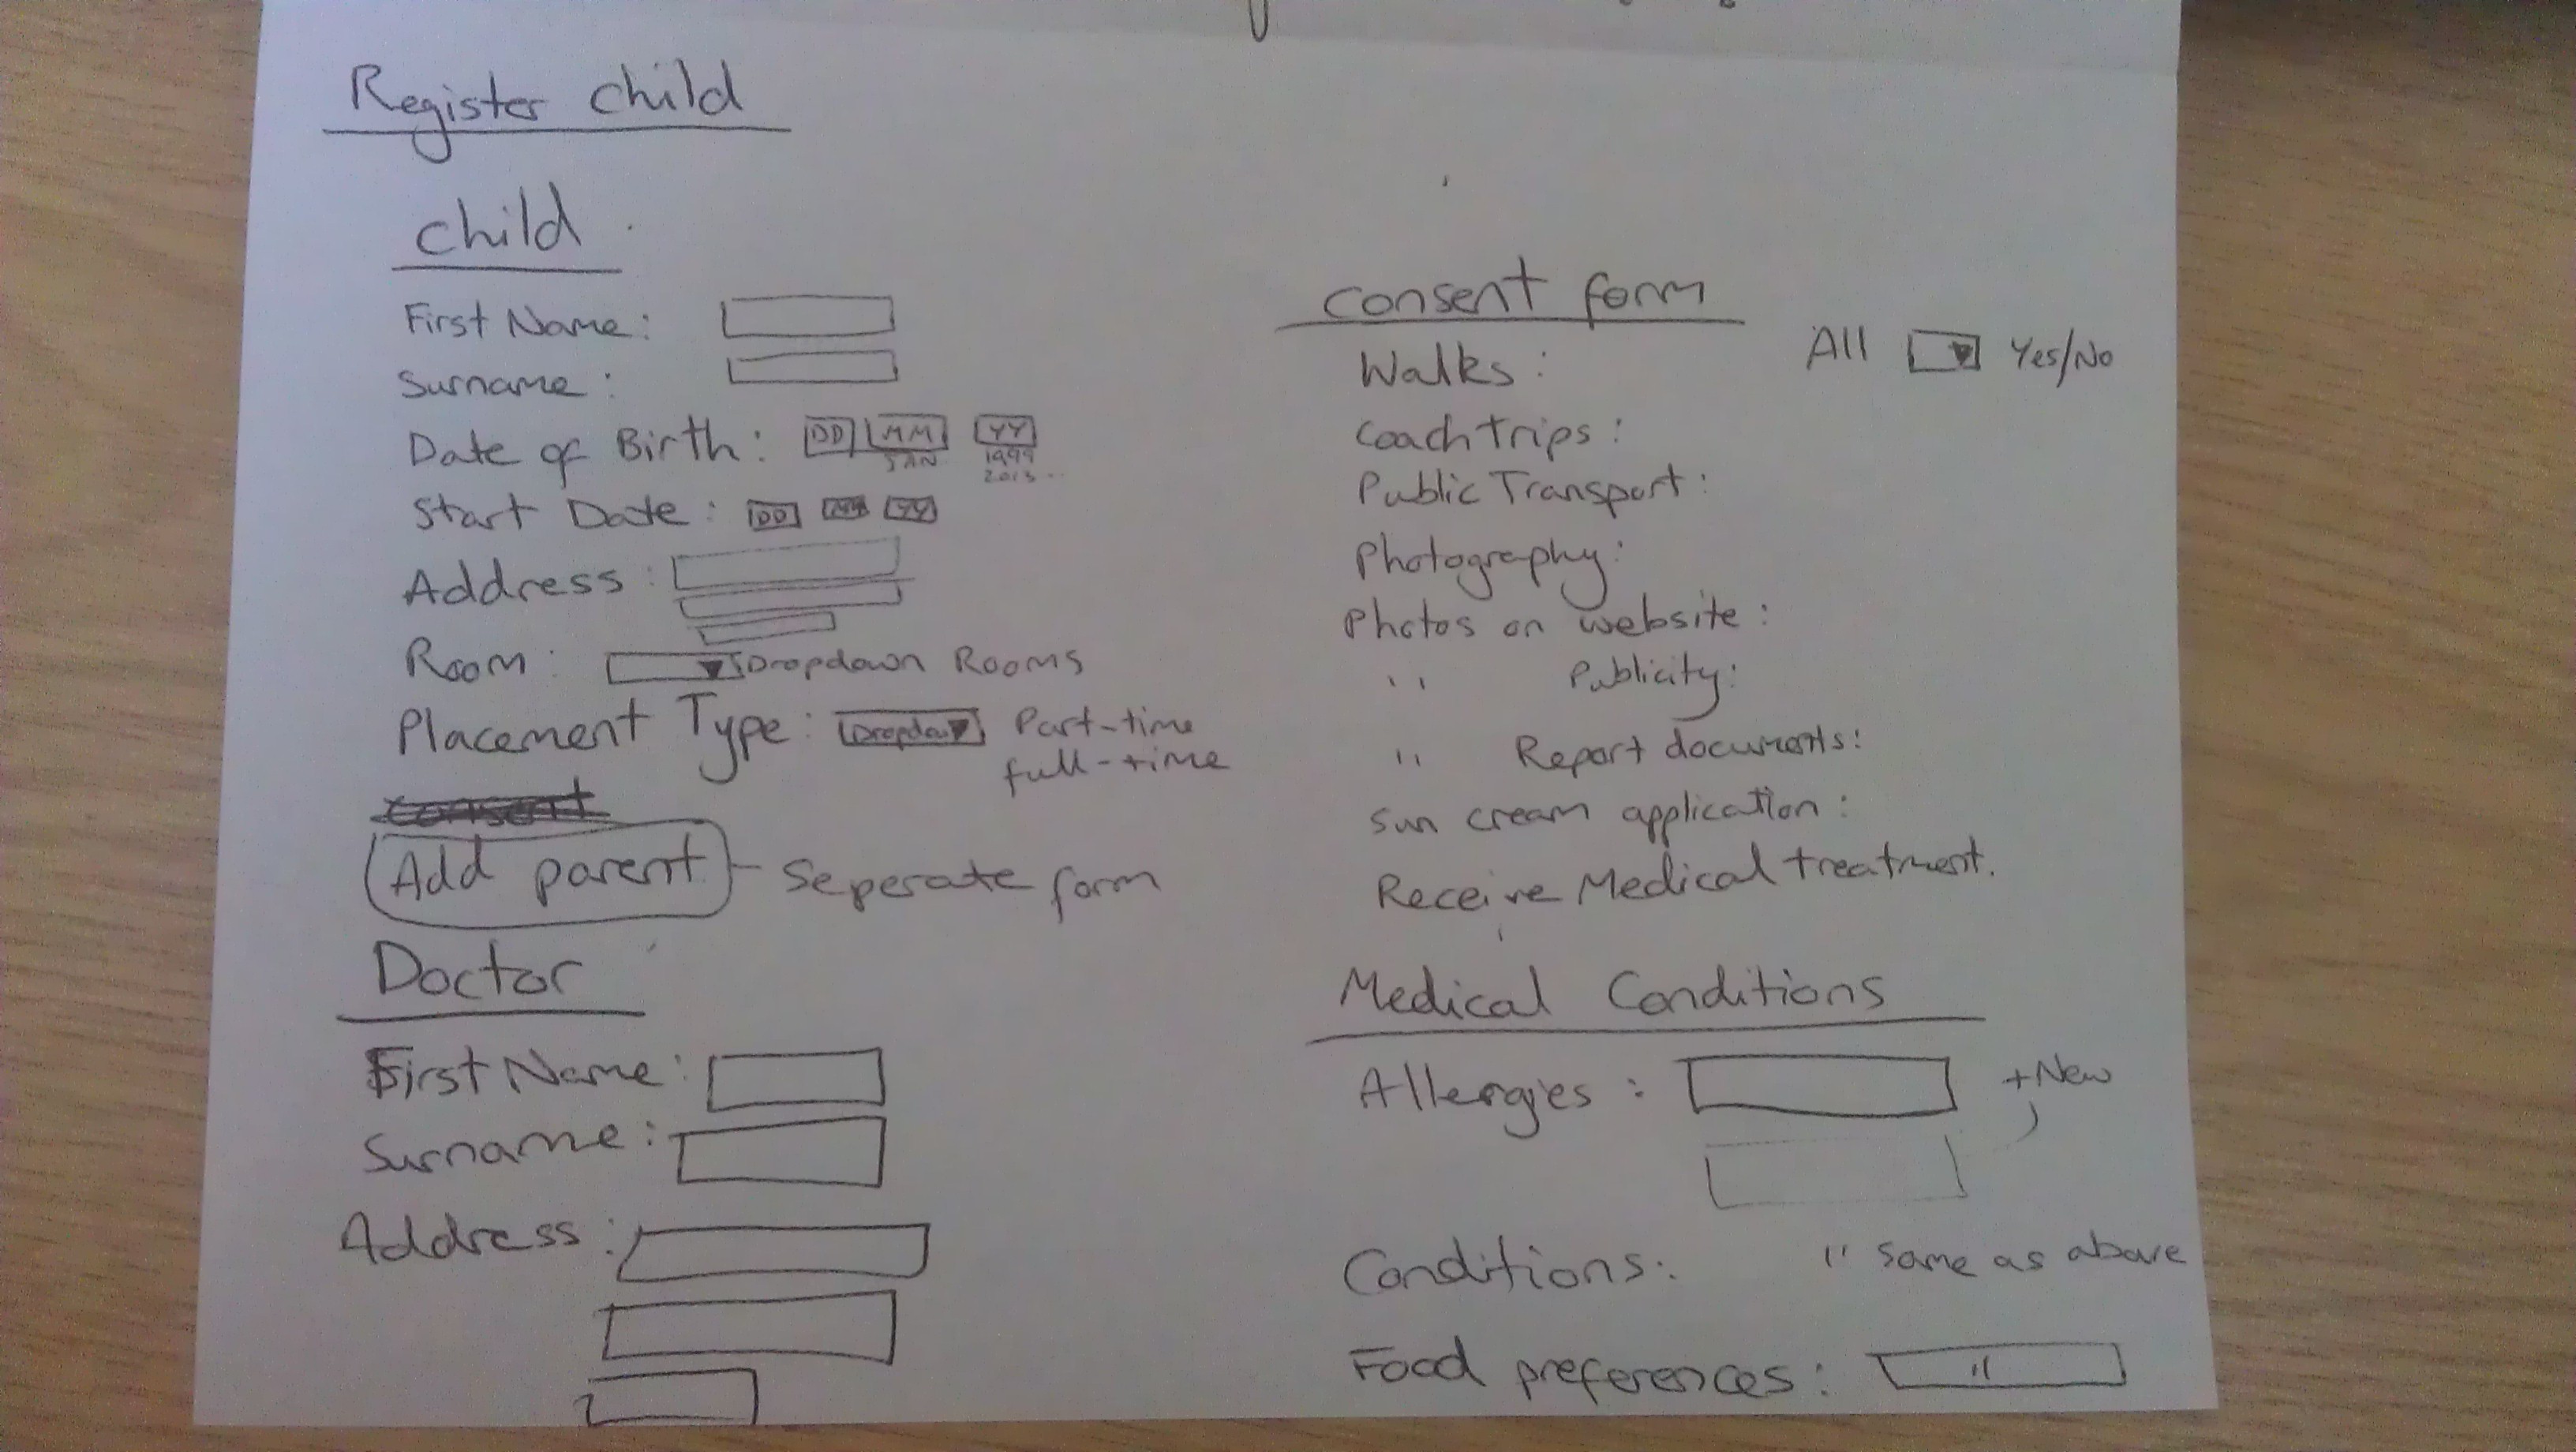 Register child
child
First Name:
Surname:
Date of Birth: DD MM YY
JAN 1999
2013...
Start Date: DD MM YY
Address:
Room: Dropdown Rooms
Placement Type: Dropdow Part-time
full-time
consent
Add parent - Seperate form
Doctor
First Name:
Surname:
Address:
consent form
All Yes/No
Walks:
Coach Trips:
Public Transport:
Photography:
Photos on website:
" Publicity:
" Report documents:
Sun cream application:
Receive Medical treatment.
Medical Conditions
Allergies: +New
Conditions: " same as above
Food preferences: "